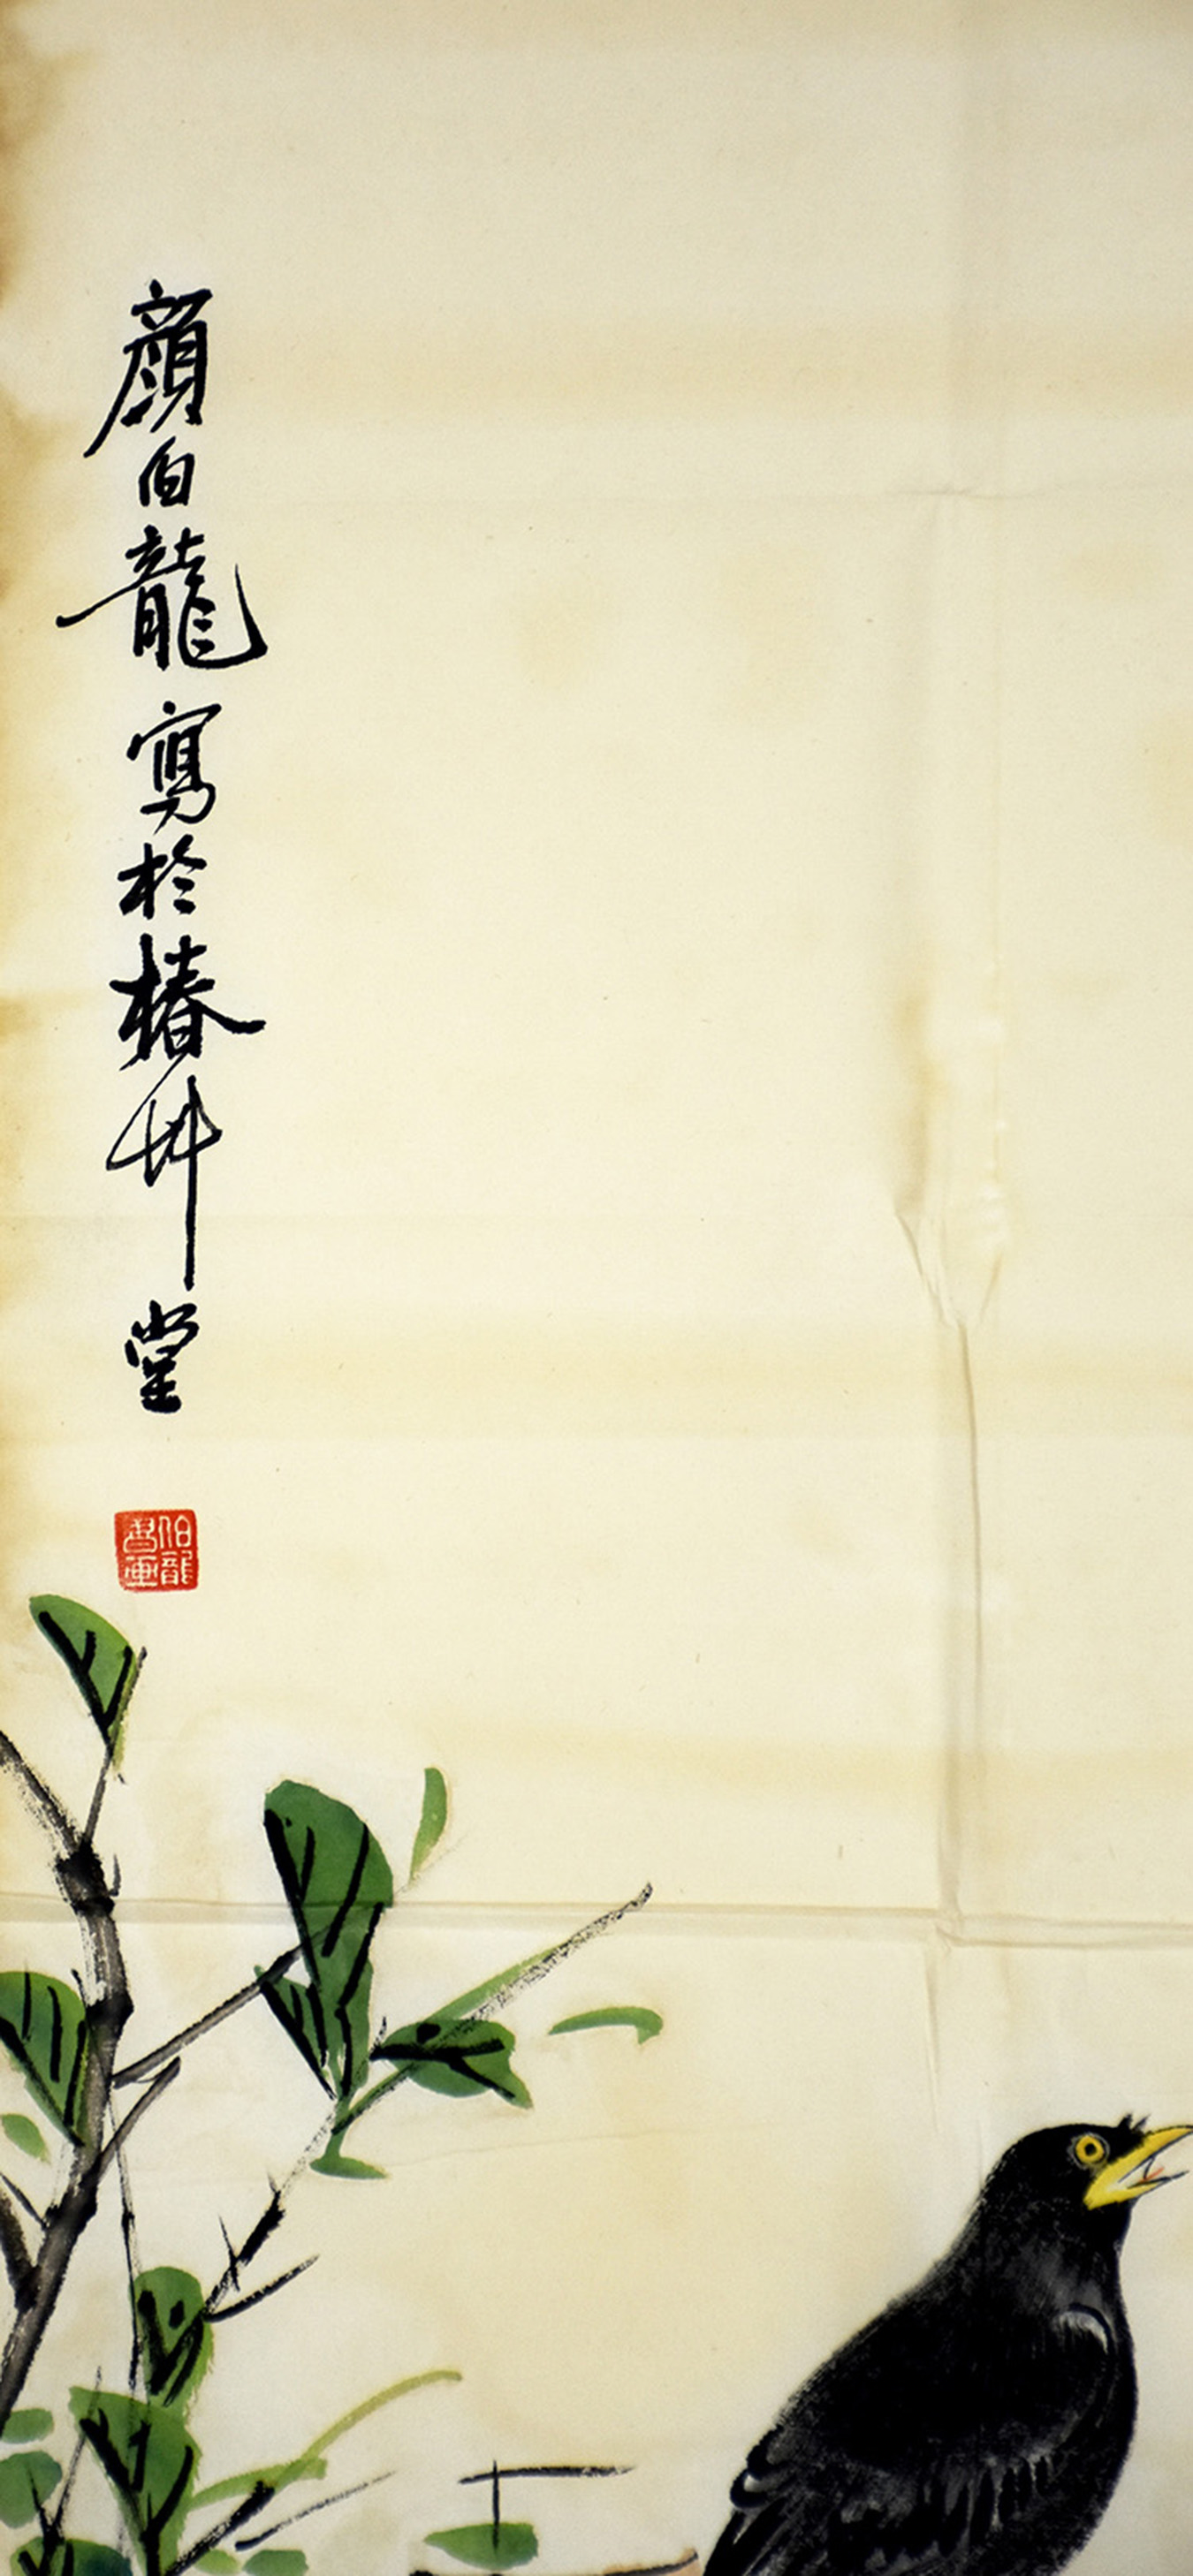 顏伯龍寫於椿艸堂
伯龍
書畫